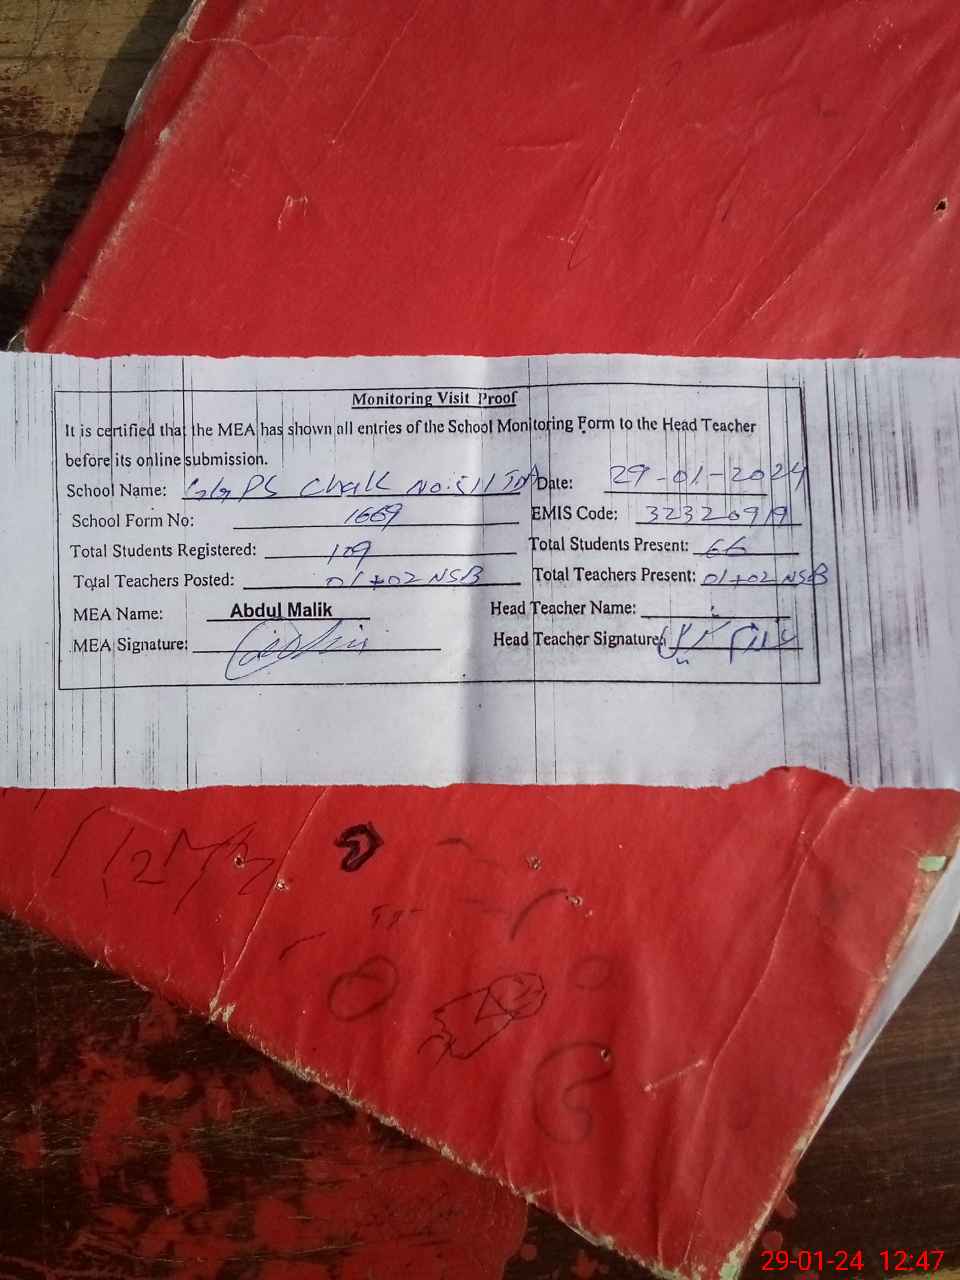 Monitoring Visit Proof
It is certified that the MEA has shown all entries of the School Monitoring Form to the Head Teacher
before its online submission.
School Name: GGPS Chak No: 511 TDA Date: 29-01-2024
School Form No: 1669 EMIS Code: 32320919
Total Students Registered: 109 Total Students Present: 66
Total Teachers Posted: 01+02 NSB Total Teachers Present: 01+02 NSB
MEA Name: Abdul Malik Head Teacher Name:
MEA Signature: Head Teacher Signature:
29-01-24 12:47